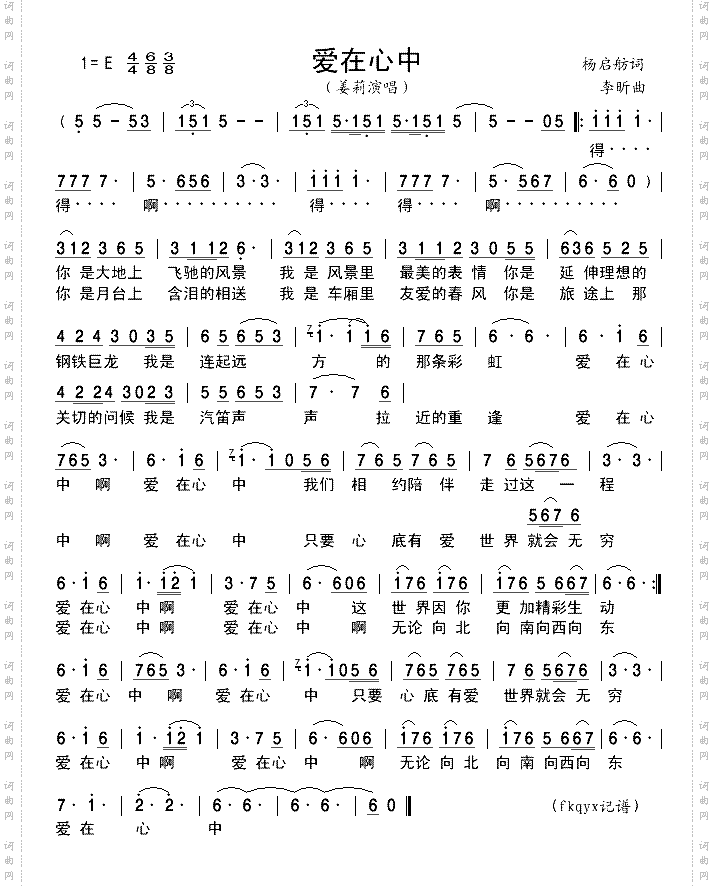 爱在心中
1=E 4/4 6/8 3/8
杨启舫词
（姜莉演唱）
李昕曲
( 5 5 - 53 | 151 5 - - | 151 5·151 5·151 5 | 5 - - 05 ‖: iii i· |
得····
777 7· | 5· 656 | 3· 3· | iii i· | 777 7· | 5· 567 | 6· 6 0 ) |
得···· 啊·········· 得···· 得···· 啊··········
312 365 | 3 112 6· | 312 365 | 3 112 3055 | 636 525 |
你 是大地上 飞驰的风景 我 是 风景里 最美的表 情 你是 延 伸理想的
你 是月台上 含泪的相送 我 是 车厢里 友爱的春 风 你是 旅 途上 那
424 3035 | 65 653 | i· i· i i6 | 765 | 6· 6· | 6·i 6 |
钢铁巨龙 我是 连起远 方 的 那条彩 虹 爱 在心
4 224 3023 | 55 653 | 7· 7 6 |
关切的问候 我是 汽笛声 声 拉 近的重 逢 爱 在心
765 3· | 6·i 6 | i· i056 | 765 765 | 76 5676 | 3· 3· |
中 啊 爱 在心 中 我们 相 约陪 伴 走 过这 一 程
567 6
中 啊 爱 在心 中 只要 心 底有 爱 世 界 就会 无 穷
6·i 6 | i· i2 i | 3·75 | 6· 606 | i76 i76 | i76 5 667 | 6· 6· :‖
爱 在心 中啊 爱 在心 中 这 世 界因 你 更 加精彩生 动
爱 在心 中啊 爱 在心 中 啊 无论 向 北 向 南向西向 东
6·i 6 | 765 3· | 6·i 6 | i· i056 | 765 765 | 76 5676 | 3· 3· |
爱 在心 中 啊 爱 在心 中 只要 心 底 有爱 世界就会 无 穷
6·i 6 | i· i2 i | 3·75 | 6· 606 | i76 i76 | i76 5 667 | 6· 6· |
爱 在心 中啊 爱 在心 中 啊 无论 向 北 向 南向西向 东
7· i· | 2· 2· | 6· 6· | 6· 6· | 6 0 ‖
(fkqyx记谱)
爱 在 心 中